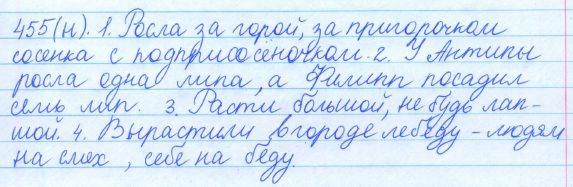 455(н). 1. Росла за горой, за пригорочком
сосенка с подприсосёночком. 2. У Антипы
росла одна липа, а Филипп посадил
семь лип. 3. Расти большой, не будь лап-
шой. 4. Вырастили в городе лебеду - людям
на смех, себе на беду.